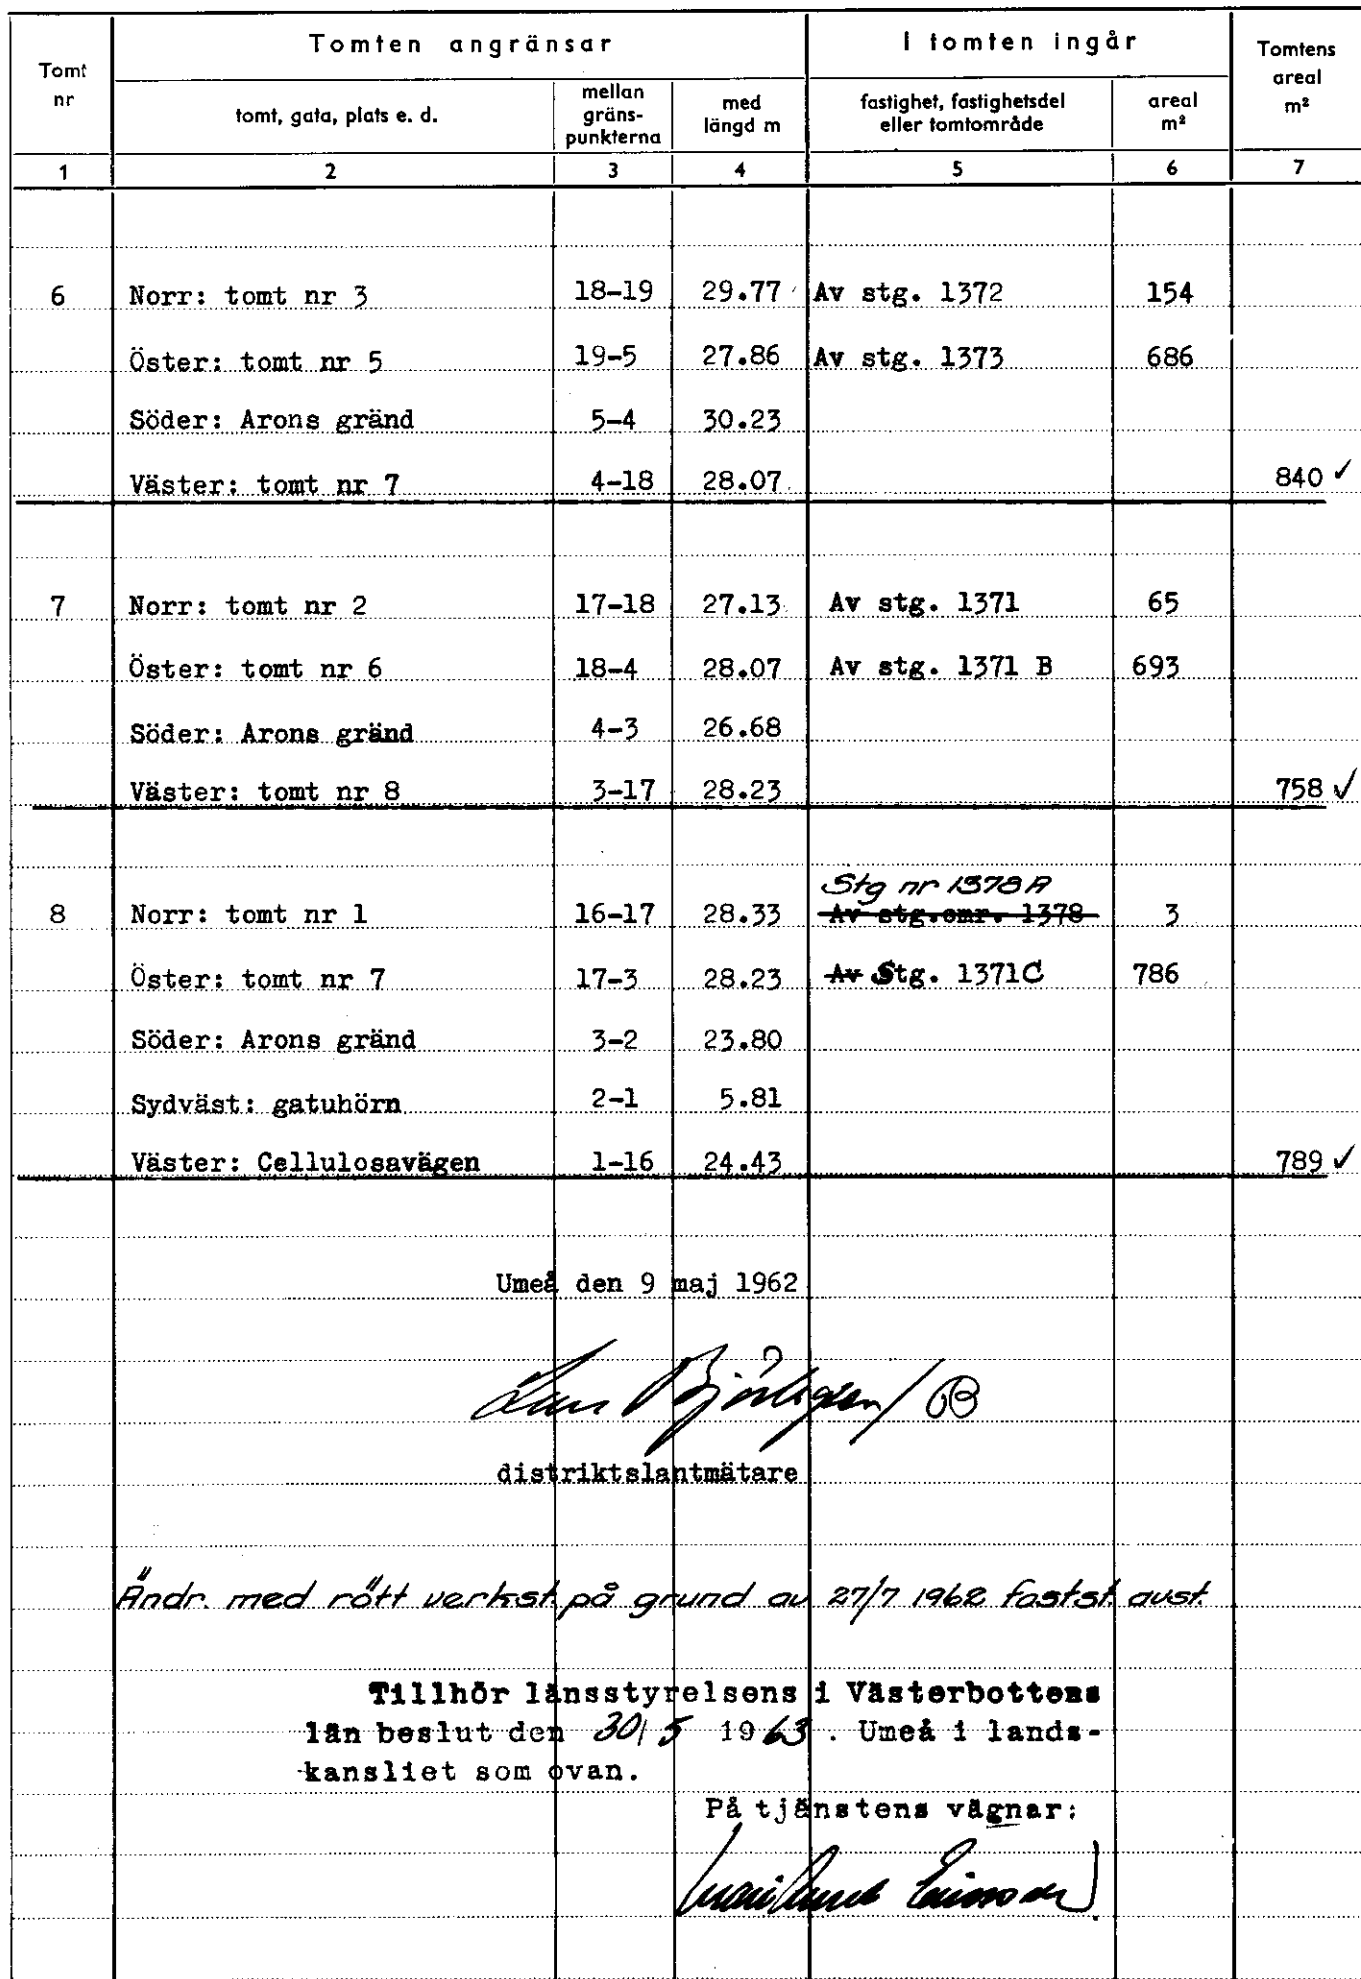 Tomt nr
Tomten angränsar
I tomten ingår
Tomtens areal m²
tomt, gata, plats e. d.
mellan gräns-punkterna
med längd m
fastighet, fastighetsdel eller tomtområde
areal m²
1 2 3 4 5 6 7
6 Norr: tomt nr 3 18-19 29.77 Av stg. 1372 154
Öster: tomt nr 5 19-5 27.86 Av stg. 1373 686
Söder: Arons gränd 5-4 30.23
Väster: tomt nr 7 4-18 28.07 840 ✓
7 Norr: tomt nr 2 17-18 27.13 Av stg. 1371 65
Öster: tomt nr 6 18-4 28.07 Av stg. 1371 B 693
Söder: Arons gränd 4-3 26.68
Väster: tomt nr 8 3-17 28.23 758 ✓
Stg nr 1378A
8 Norr: tomt nr 1 16-17 28.33 Av stg.omr. 1378 3
Öster: tomt nr 7 17-3 28.23 Av Stg. 1371C 786
Söder: Arons gränd 3-2 23.80
Sydväst: gatuhörn 2-1 5.81
Väster: Cellulosavägen 1-16 24.43 789 ✓
Umeå den 9 maj 1962
distriktslantmätare
Ändr. med rött verkst. på grund av 27/7 1962 fastst. avst.
Tillhör länsstyrelsens i Västerbottens
län beslut den 30/5 1963. Umeå i lands-
kansliet som ovan.
På tjänstens vägnar: